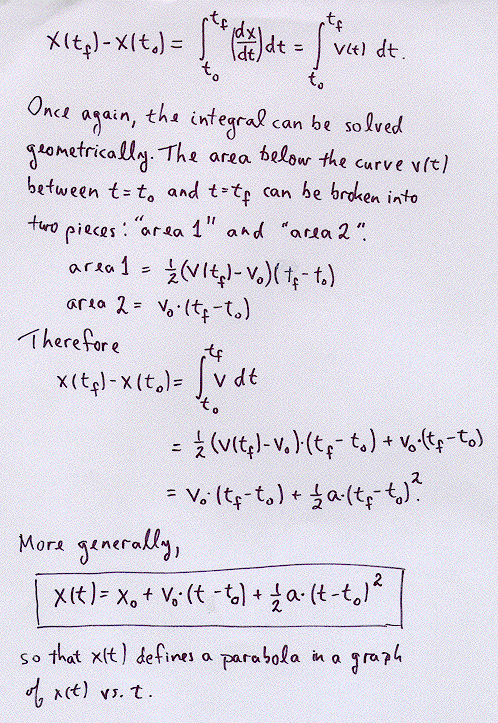 x(t_f)-x(t_0) = ∫_{t_0}^{t_f} (dx/dt) dt = ∫_{t_0}^{t_f} v(t) dt.
Once again, the integral can be solved
geometrically. The area below the curve v(t)
between t=t_0 and t=t_f can be broken into
two pieces: "area 1" and "area 2".
area 1 = ½(v(t_f)-v_0)(t_f-t_0)
area 2 = v_0·(t_f-t_0)
Therefore
x(t_f)-x(t_0) = ∫_{t_0}^{t_f} v dt
= ½(v(t_f)-v_0)·(t_f-t_0) + v_0·(t_f-t_0)
= v_0·(t_f-t_0) + ½a·(t_f-t_0)².
More generally,
x(t) = x_0 + v_0·(t-t_0) + ½a·(t-t_0)²
so that x(t) defines a parabola in a graph
of x(t) vs. t.